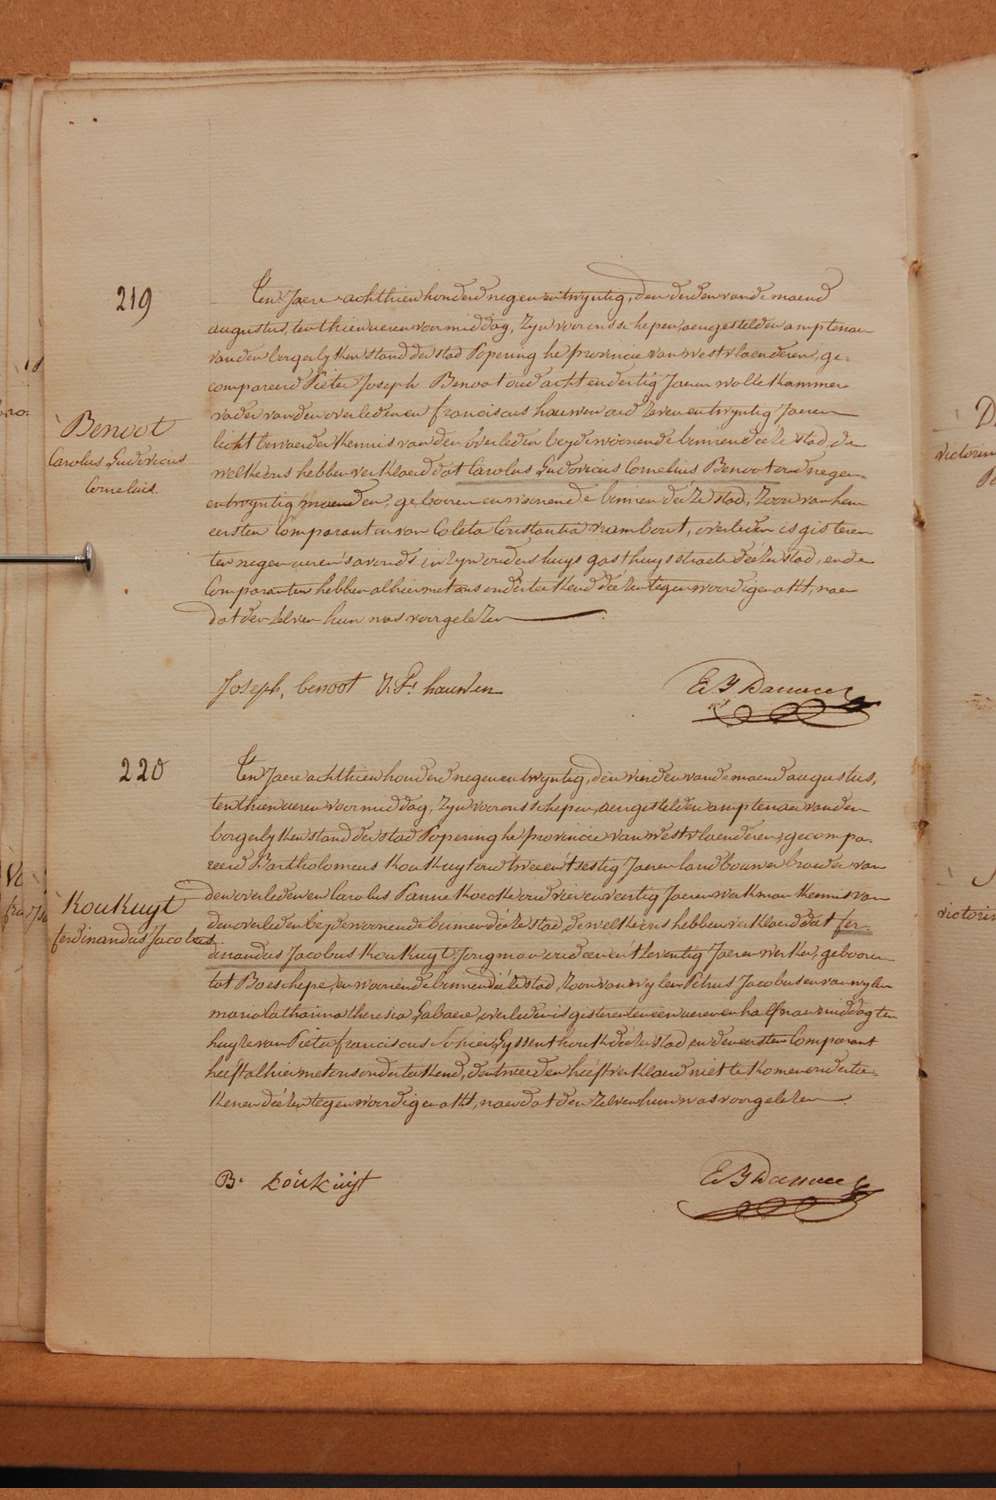 219
Benoot
Carolus Ludovicus
Cornelius.
Ten Jaere achthien honderd negen en twyntig, den derden van de maend
augustus, ten thien ueren voormiddag, Zyn voor ons schepen, aengestelden amptenaer
van den borgerlyken stand der stad Poperinghe provincie van westvlaenderen, ge-
compareerd Pieter Joseph Benoot oud acht en dertig Jaeren wollekammer
vader van den overledenen franciscus hauwen oud zeven en twyntig Jaeren
kennis van den overleden beyde woonende binnen deéze stad, de
welke ons hebben verklaerd dat Carolus Ludovicus Cornelius Benoot oud negen
en twyntig maenden, gebooren en woonende binnen deéze stad, Zoon van hem
eersten Comparant en van Coleta Constantia Rambout, overleden is gisteren
ten negen ueren s'avonds in zyn ouders huys gasthuys straete deéze stad, en de
Comparanten hebben alhier met ons onderteekend deézen tegenwoordigen akt, naer
dat den zelven hun was voorgelezen
Joseph, benoot hauwen
220
Koukuyt
ferdinandus Jacobus
Ten Jaere achthien honderd negen en twyntig, den vierden van de maend augustus,
ten thien ueren voormiddag, Zyn voor ons schepen, aengestelden amptenaer van den
borgerlyken stand der stad Poperinghe provincie van westvlaenderen, gecompa-
reerd Bartholomeus Koukuyt oud twee en tsestig Jaeren landbouwer broeder van
den overledenen Carolus Pannekoecke oud vier en veertig Jaeren werkman kennis van
den overleden beyde woonende binnen deéze stad, de welke ons hebben verklaerd dat fer-
dinandus Jacobus Koukuyt Jongman oud een en tzeventig Jaeren werker, gebooren
tot Boeschepe, en woonende binnen deéze stad, Zoon van wylen Petrus Jacobus en van wylen
maria Catharina theresia Labaere, overleden is gisteren ten een uere en half naer middag ten
huyze van Pieter franciscus deéze stad en den eersten Comparant
heéft alhier met ons onderteekend, den tweeden heéft verklaerd niet te komen onderte-
kenen deézen tegenwoordigen akt, naer dat den zelven hun was voorgelezen
B. Koukuijt